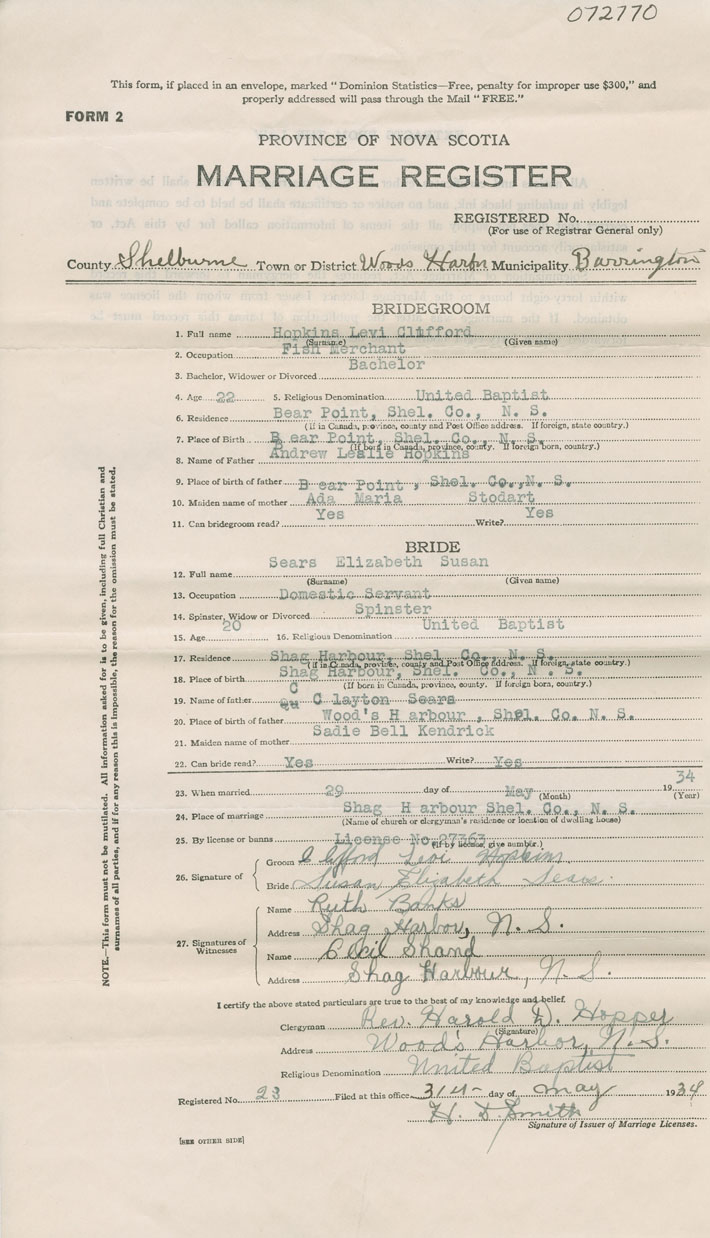 072770
This form, if placed in an envelope, marked "Dominion Statistics—Free, penalty for improper use $300," and
properly addressed will pass through the Mail "FREE."
FORM 2
PROVINCE OF NOVA SCOTIA
MARRIAGE REGISTER
REGISTERED No.
(For use of Registrar General only)
County Shelburne Town or District Woods Harbor Municipality Barrington
BRIDEGROOM
1. Full name Hopkins Levi Clifford
(Surname) (Given name)
2. Occupation Fish Merchant
3. Bachelor, Widower or Divorced Bachelor
4. Age 22 5. Religious Denomination United Baptist
6. Residence Bear Point, Shel. Co., N. S.
(If in Canada, province, county and Post Office address. If foreign, state country.)
7. Place of Birth B ear Point, Shel. Co., N. S.
(If born in Canada, province, county. If foreign born, country.)
8. Name of Father Andrew Leslie Hopkins
9. Place of birth of father B ear Point , Shel. Co., N. S.
10. Maiden name of mother Ada Maria Stodart
11. Can bridegroom read? Yes Write? Yes
BRIDE
12. Full name Sears Elizabeth Susan
(Surname) (Given name)
13. Occupation Domestic Servant
14. Spinster, Widow or Divorced Spinster
15. Age 20 16. Religious Denomination United Baptist
17. Residence Shag Harbour, Shel. Co., N. S.
(If in Canada, province, county and Post Office address. If foreign, state country.)
18. Place of birth Shag Harbour, Shel. Co., N. S.
(If born in Canada, province, county. If foreign born, country.)
19. Name of father C layton Sears
20. Place of birth of father Wood's H arbour , Shel. Co. N. S.
21. Maiden name of mother Sadie Bell Kendrick
22. Can bride read? Yes Write? Yes
23. When married 29 day of May 1934
(Month) (Year)
24. Place of marriage Shag H arbour Shel. Co., N. S.
(Name of church or clergyman's residence or location of dwelling house)
25. By license or banns License No. 27363
(If by license, give number.)
26. Signature of Groom Clifford Levi Hopkins
Bride Susan Elizabeth Sears.
27. Signatures of Witnesses
Name Ruth Banks
Address Shag Harbor, N. S.
Name Cecil Shand
Address Shag Harbour, N. S.
I certify the above stated particulars are true to the best of my knowledge and belief.
Clergyman Rev. Harold D. Hopper
(Signature)
Address Wood's Harbor, N. S.
Religious Denomination United Baptist
Registered No. 23 Filed at this office 31st day of May 1934
H. D. Smith
Signature of Issuer of Marriage Licenses.
[SEE OTHER SIDE]
NOTE.—This form must not be mutilated. All information asked for is to be given, including full Christian and
surnames of all parties, and if for any reason this is impossible, the reason for the omission must be stated.